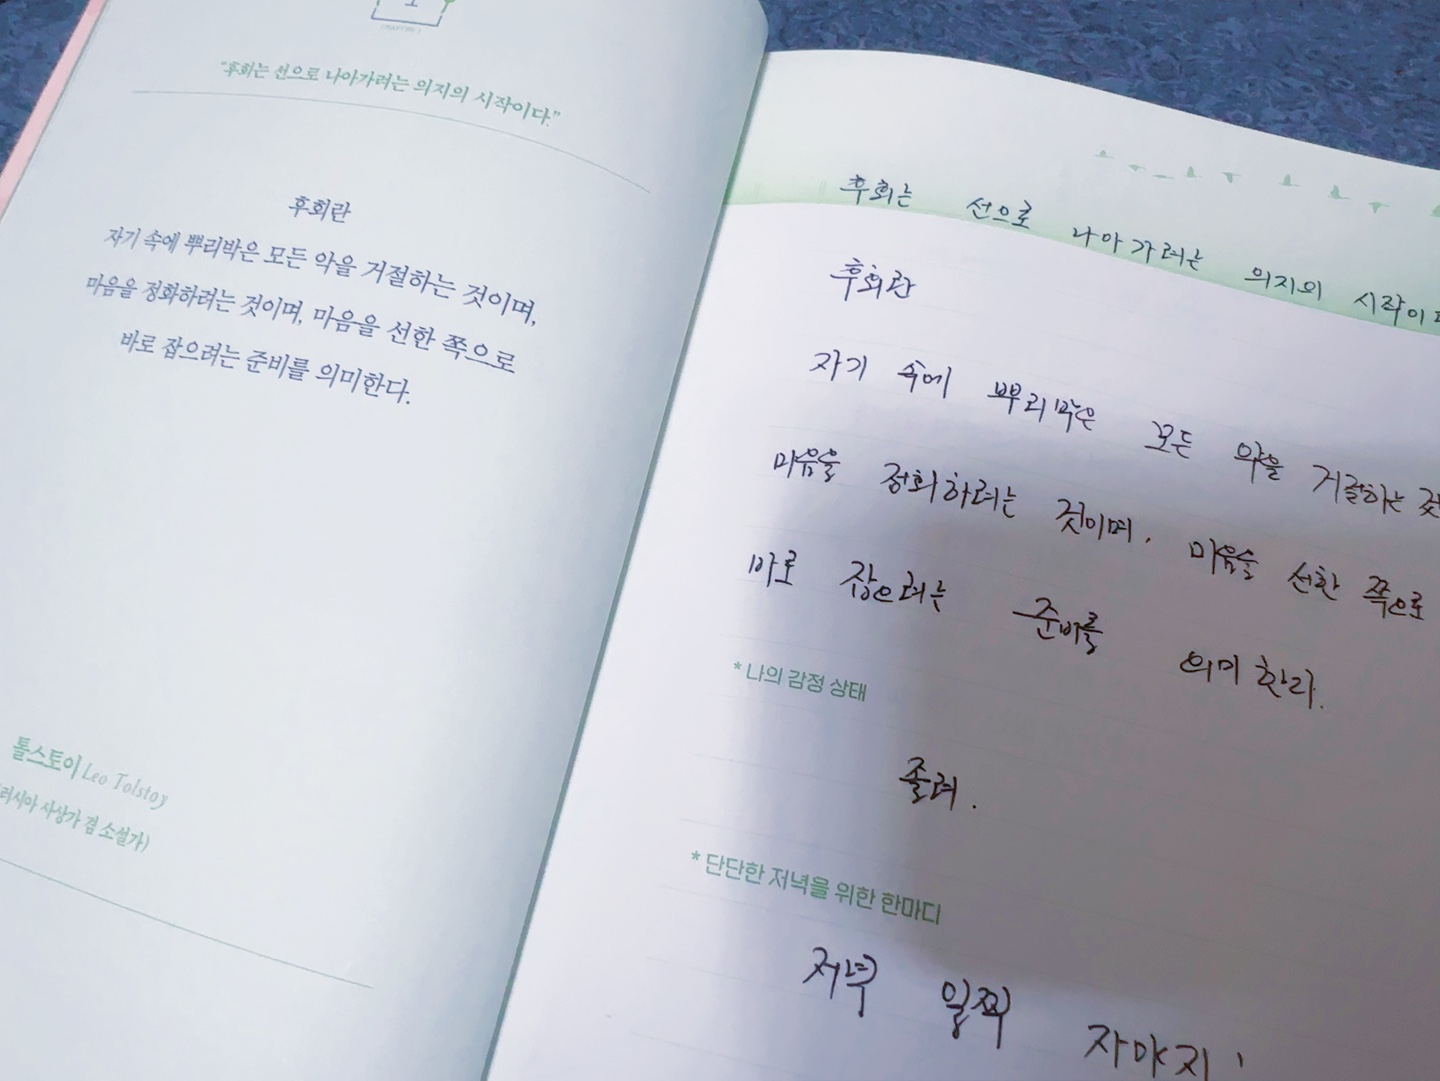 1
CHAPTER 1
"후회는 선으로 나아가려는 의지의 시작이다."
후회란
자기 속에 뿌리박은 모든 악을 거절하는 것이며,
마음을 정화하려는 것이며, 마음을 선한 쪽으로
바로 잡으려는 준비를 의미한다.
톨스토이 Leo Tolstoy
러시아 사상가 겸 소설가)
후회는 선으로 나아가려는 의지의 시작이
후회란
자기 속에 뿌리박은 모든 악을 거절하는 것
마음을 정화하려는 것이며, 마음을 선한 쪽으로
바로 잡으려는 준비를 의미한다.
* 나의 감정 상태
졸려.
* 단단한 저녁을 위한 한마디
저녁 일찍 자야지